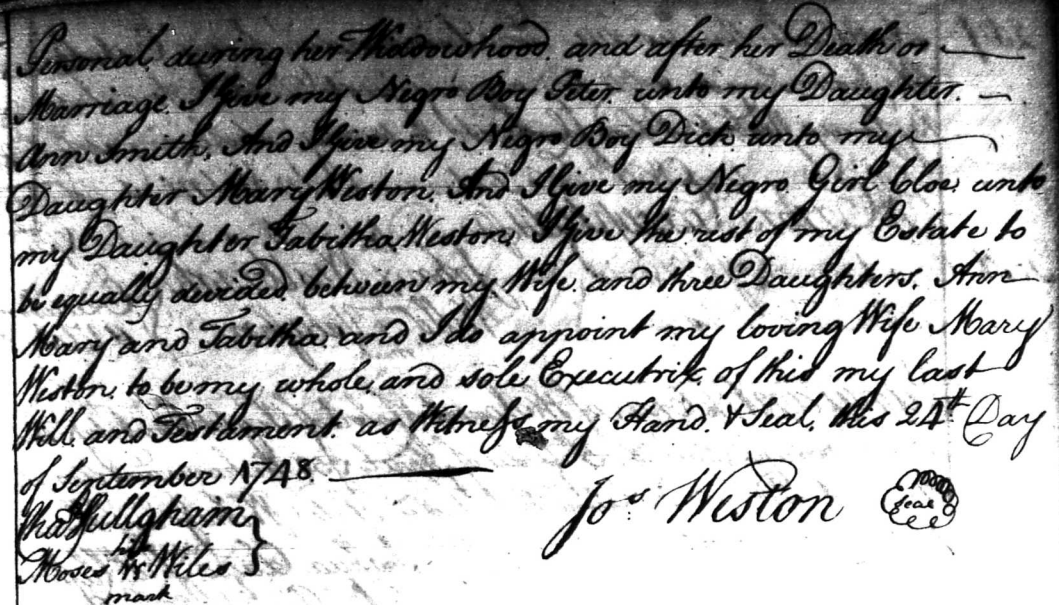 Personal, during her Widdowhood, and after her Death or
Marriage, I Give my Negro Boy Peter, unto my Daughter
Ann Smith, And I Give my Negro Boy Dick unto my
Daughter Mary Weston, And I Give my Negro Girl Cloe, unto
my Daughter Tabitha Weston, I Give the rest of my Estate to
be equally devided, between my Wife, and three Daughters, Ann
Mary and Tabitha, and I do appoint my loving Wife Mary
Weston, to be my whole, and sole Executrix, of this my last
Will, and Testament, as Witness, my Hand, & Seal, this 24th Day
of September 1748.
Jos Weston seal
Fullgham
his
Moses Wiles
mark